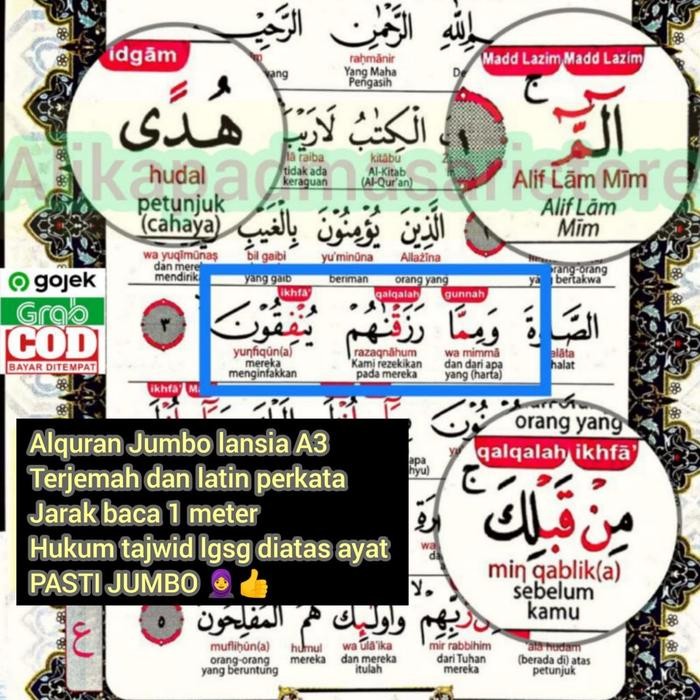 اللهِ الرَّحْمٰنِ الرَّحِيْمِ
raḥmānir
Yang Maha
Pengasih
idgām
هُدًى
hudal
petunjuk
(cahaya)
Madd Lazim Madd Lazim
الٓمّٓ ۚ
Alif Lām Mīm
Alif Lām
Mim
الْكِتٰبُ لَارَيْبَ
lā raiba
kitābu
tidak ada
keraguan
Al-Kitab
(Al-Qur'an)
Atikapadmasaristore
الَّذِيْنَ يُؤْمِنُوْنَ بِالْغَيْبِ
wa yuqīmūnaṣ
bil gaibi
yu'minūna
Allażīna
dan mereka
mendirikan
yang gaib
beriman
orang yang
orang-orang
yang bertakwa
gojek
Grab
COD
BAYAR DITEMPAT
ikhfā'
qalqalah
gunnah
الصَّلٰوةَ وَمِمَّا رَزَقْنٰهُمْ يُنْفِقُوْنَ ٣
yunfiqūn(a)
razaqnāhum
wa mimmā
mereka
menginfakkan
Kami rezekikan
pada mereka
dan dari apa
yang (harta)
ikhfā'
Alquran Jumbo lansia A3
Terjemah dan latin perkata
Jarak baca 1 meter
Hukum tajwid lgsg diatas ayat
PASTI JUMBO 🧕👍
orang yang
qalqalah ikhfā'
مِنْ قَبْلِكَ ۚ
miη qablik(a)
sebelum
kamu
رَّبِّهِمْ وَاُولٰۤىِٕكَ هُمُ الْمُفْلِحُوْنَ ٥
ع
mufliḥūn(a)
humul
wa ulā'ika
mir rabbihim
'alā hudam
orang-orang
yang beruntung
mereka
dan mereka
itulah
dari Tuhan
mereka
(berada di) atas
petunjuk